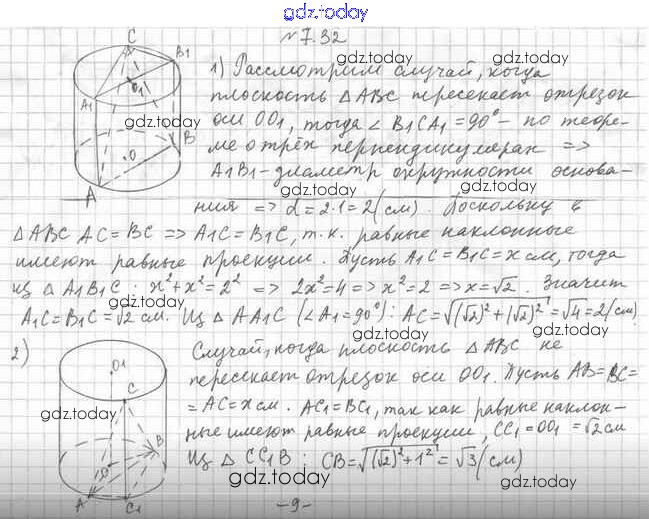 gdz.today
№ 7.32
1) Рассмотрим случай, когда
плоскость △ABC пересекает отрезок
оси OO₁, тогда ∠ B₁CA₁ = 90° – по теоре-
ме о трёх перпендикулярах =>
A₁B₁ – диаметр окружности основа-
ния => d = 2·1 = 2 (см). Поскольку в
△ABC AC = BC => A₁C = B₁C, т.к. равные наклонные
имеют равные проекции. Пусть A₁C = B₁C = x см, тогда
из △ A₁B₁C : x² + x² = 2² => 2x² = 4 => x² = 2 => x = √2. Значит
A₁C = B₁C = √2 см. Из △ AA₁C (∠A₁ = 90°): AC = √((√2)² + (√2)²) = √4 = 2 (см)
2) Случай, когда плоскость △ABC не
пересекает отрезок оси OO₁. Пусть AB = BC =
= AC = x см. AC₁ = BC₁, так как равные наклон-
ные имеют равные проекции, CC₁ = OO₁ = √2 см
Из △ CC₁B : CB = √((√2)² + 1²) = √3 (см)
- 9 -
C
B₁
A₁
O₁
B
O
A
O₁
C
B
O
A
C₁
gdz.today
gdz.today
gdz.today
gdz.today
gdz.today
gdz.today
gdz.today
gdz.today
gdz.today
gdz.today
gdz.today
gdz.today
gdz.today